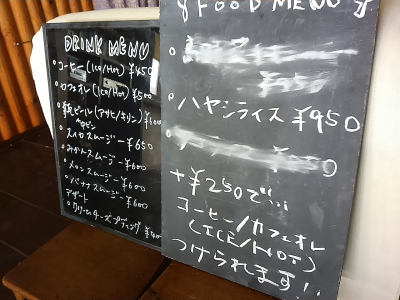 DRINK MENU
・コーヒー(Ice/Hot) ¥450
・カフェオレ(Ice/Hot) ¥500
・瓶ビール(アサヒ/キリン) ¥600
・スイカスムージー ¥650
・みかんスムージー ¥600
・メロンスムージー ¥600
・バナナスムージー ¥600
デザート
・クリームチーズ
FOOD MENU
・
・ハヤシライス ¥950
・
+¥250で…
コーヒー/カフェオレ
(ICE/HOT)
つけられます!!